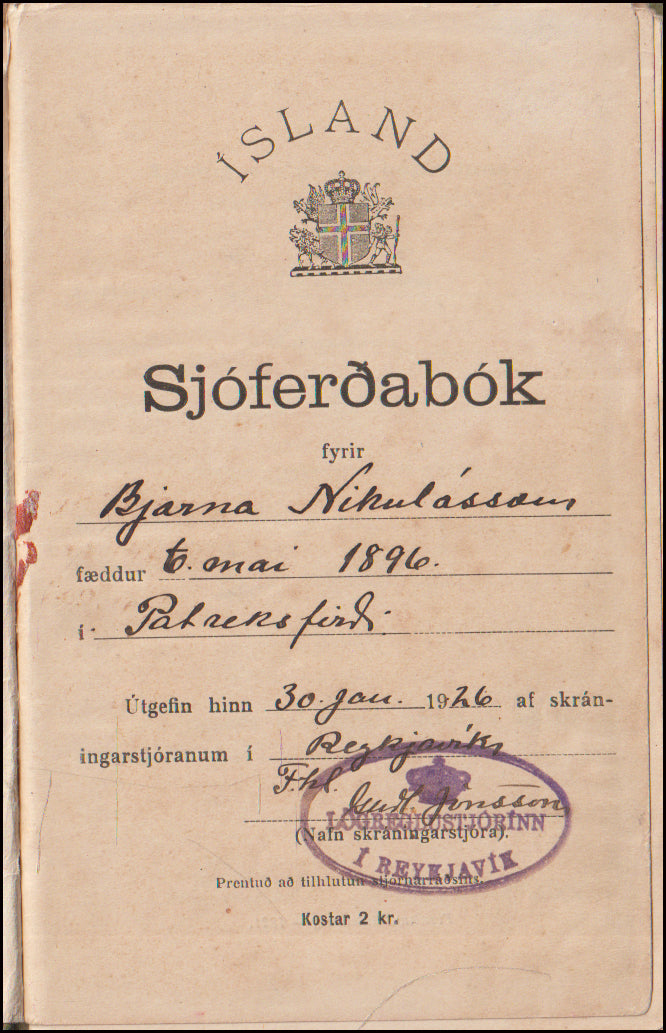 ÍSLAND
Sjóferðabók
fyrir
Bjarna Nikulásson
fæddur 6. mai 1896.
í Patreksfirði.
Útgefin hinn 30. jan. 1926 af skrán-
ingarstjóranum í Reykjavík
F.h.
Jónsson
LÖGREGLUSTJÓRINN
(Nafn skráningarstjóra).
Í REYKJAVÍK
Prentuð að tilhlutun stjórnarráðsins.
Kostar 2 kr.